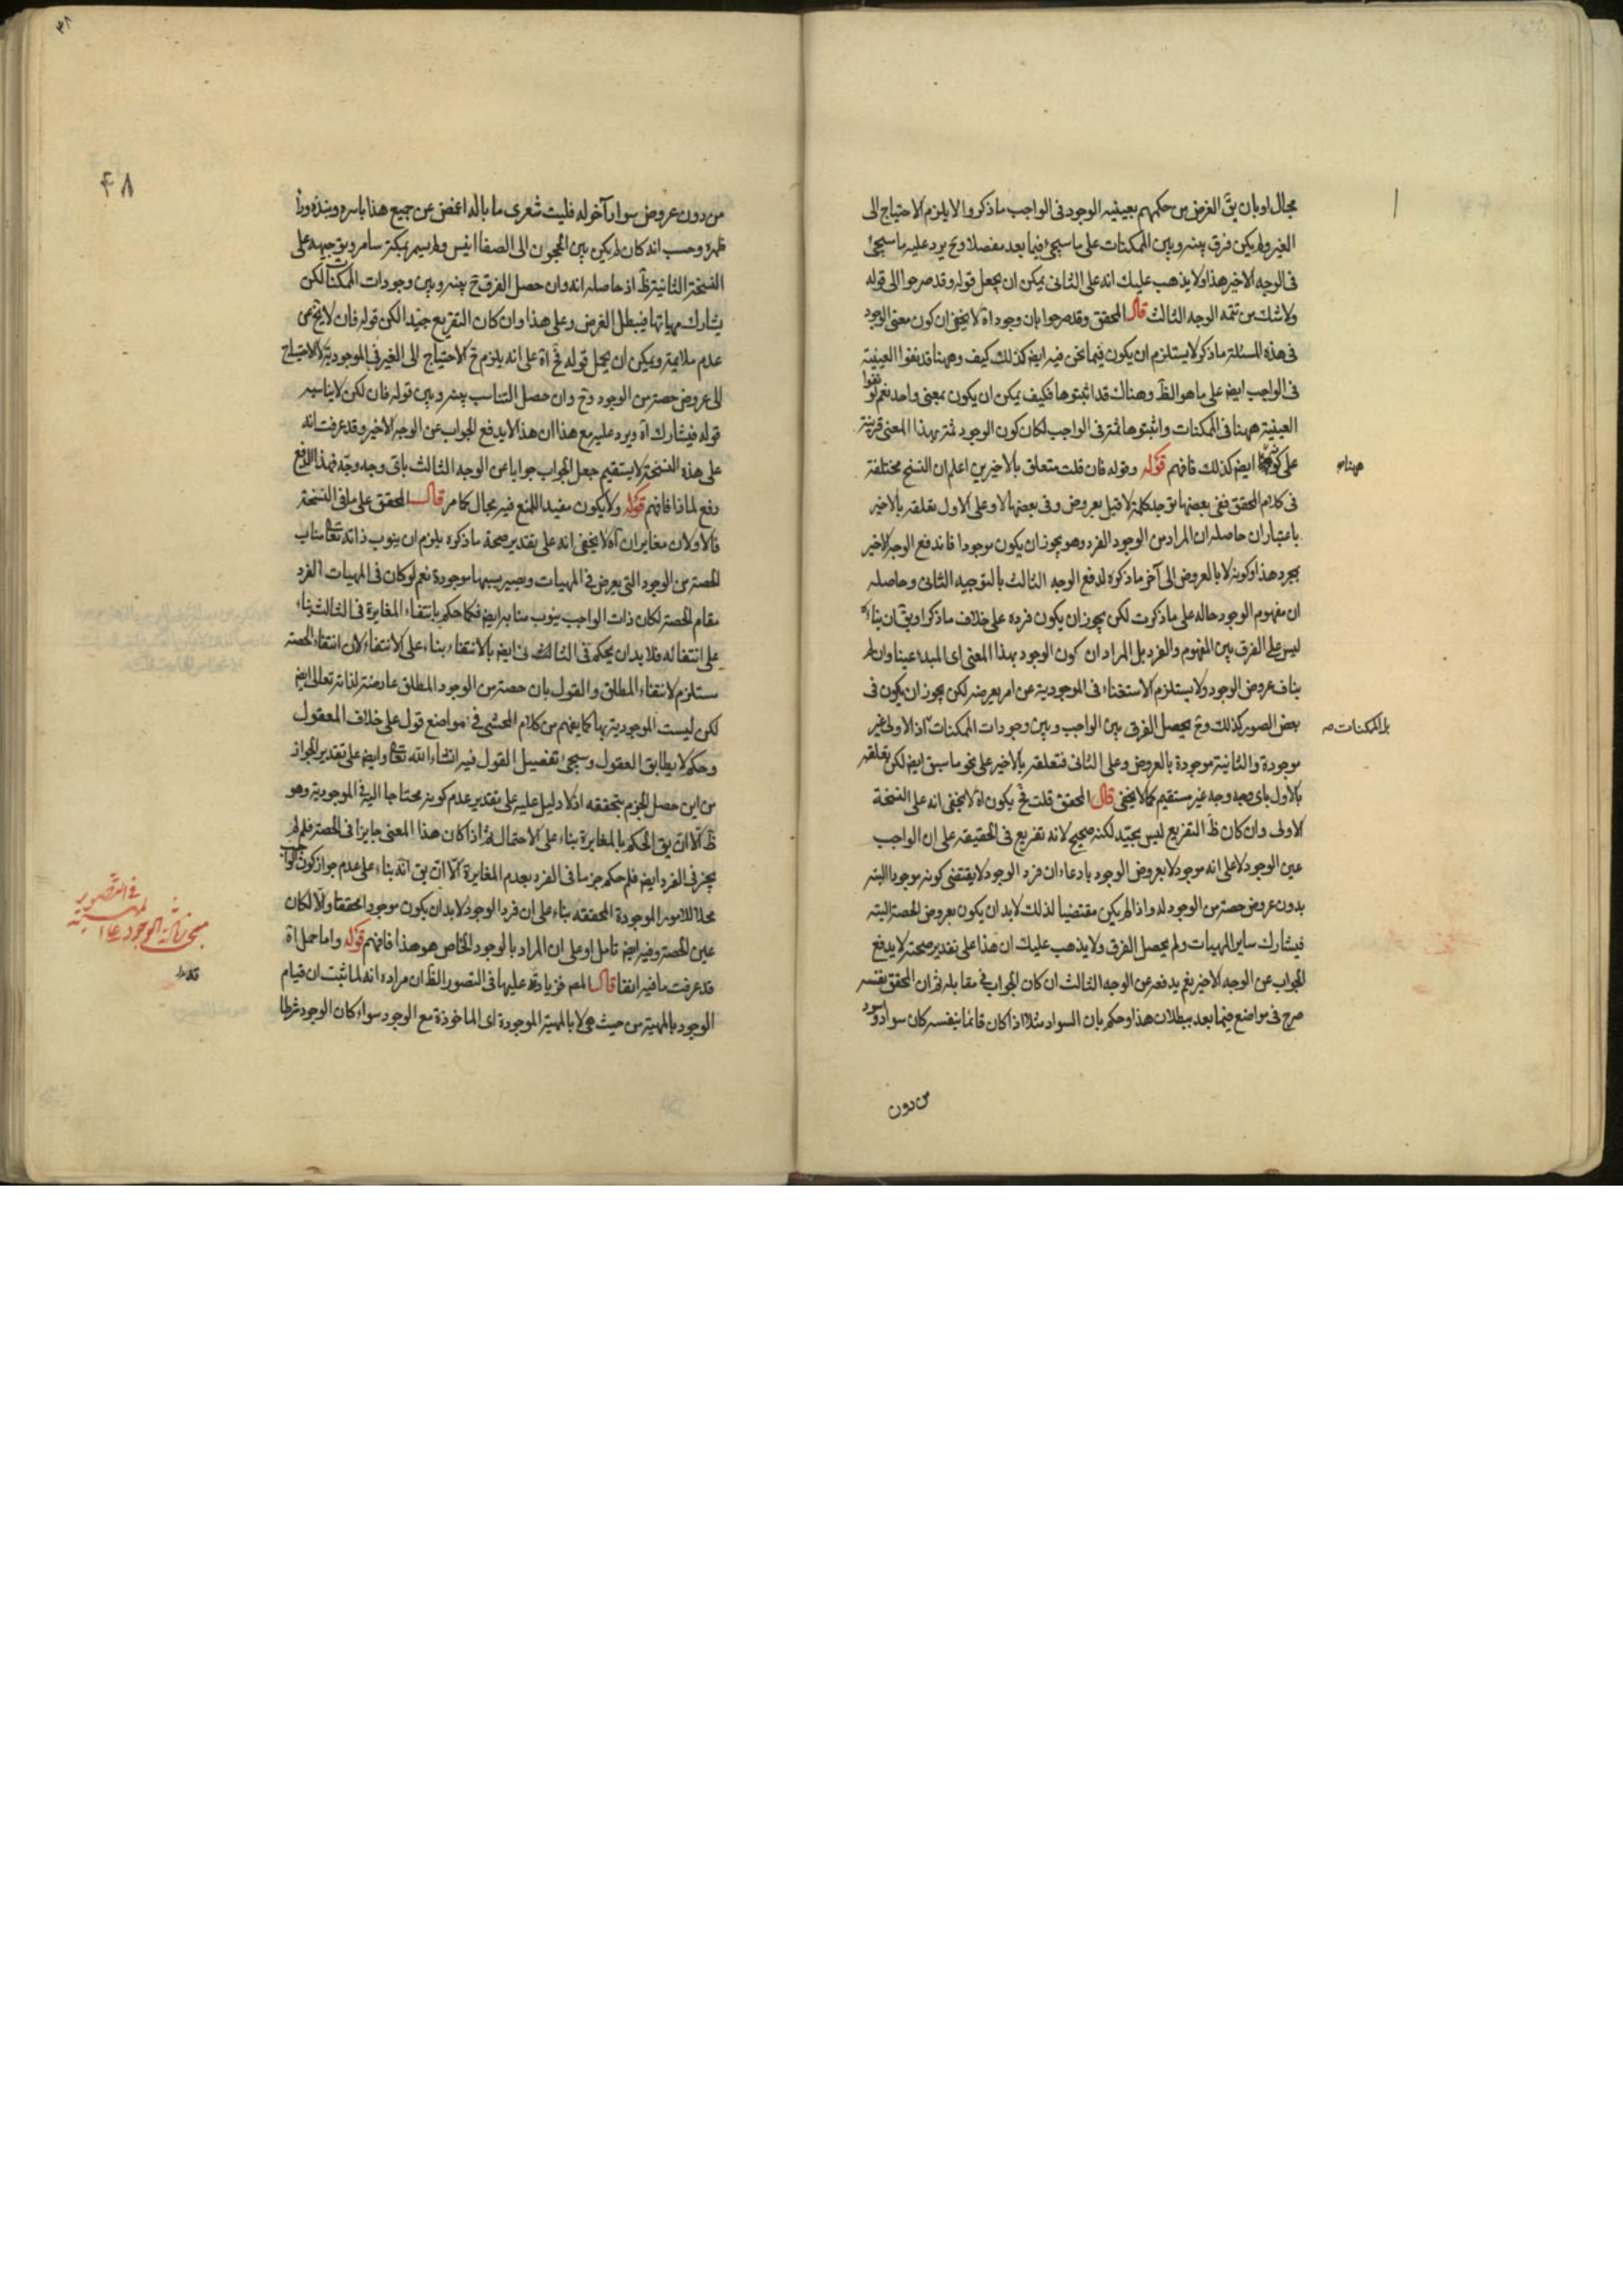 مجال او بان يق الغرض من حكمهم بعينيه الوجود فى الواجب ما ذكروا لا يلزم الاحتياج الى
الغير ولم يكن فرق بينه وبين الممكنات على ما سيجئ فيما بعد مفصلا وح يرد عليه ما سيجئ
فى الوجه الاخير هذا ولا يذهب عليك انه على الثانى يمكن ان يجعل قوله وقد صرحوا الى قوله
ولا شك من تتمه الوجه الثالث قال المحقق وقد صرحوا بان وجود اه لا يخفى ان كون معنى الوجود
فى هذه المسئلة ما ذكر لا يستلزم ان يكون فيما نحن فيه ايض كذلك كيف وههنا قد نفوا العينية
فى الواجب ايض على ما هو الظ وهناك قد اثبتوها فكيف يمكن ان يكون بمعنى واحد نعم لو نفوا
العينية ههنا فى الممكنات واثبتوها ثمة فى الواجب لكان كون الوجود ثمة بهذا المعنى قرينة
على كونه ايض كذلك فافهم قوله وقوله فان قلت متعلق بالاخيرين اعلم ان النسخ مختلفة
ههنا
فى كلام المحقق ففى بعضها توجد كلمة لا قبل بعروض وفى بعضها لا وعلى الاول تعلقه بالاخير
باعتبار ان حاصله ان المراد من الوجود الفرد وهو يجوز ان يكون موجودا فاندفع الوجه الاخير
بمجرد هذا وكونه لا بالعروض الى آخر ما ذكره لدفع الوجه الثالث بالتوجيه الثانى وحاصله
ان مفهوم الوجود حاله على ما ذكرت لكن يجوز ان يكون فرده على خلاف ما ذكر او يق ان بناءه
ليس على الفرق بين المفهوم والفرد بل المراد ان كون الوجود بهذا المعنى اى المبدء عينا وان لم
يناف عروض الوجود ولا يستلزم الاستغناء فى الموجودية عن امر يعرضه لكن يجوز ان يكون فى
بعض الصور كذلك وح يحصل الفرق بين الواجب وبين وجودات الممكنات اذ الاولى غير
بل الممكنات
موجودة والثانية موجودة بالعروض وعلى الثانى فتعلقه بالاخير على نحو ما سبق ايض لكن تعلقه
بالاول باى وجه وجه غير مستقيم كما لا يخفى قال المحقق قلت فح يكون اه لا يخفى انه على النسخة
الاولى وان كان ظ التفريع ليس بجيد لكنه صحيح لانه تفريع فى الحقيقة على ان الواجب
عين الوجود لا على انه موجود لا بعروض الوجود بادعاء ان فرد الوجود لا يقتضى كونه موجودا البته
بدون عروض حصة من الوجود له واذا لم يكن مقتضيا لذلك لا بد ان يكون بعروض الحصة البته
فيشارك ساير المهيات ولم يحصل الفرق ولا يذهب عليك ان هذا على تقدير صحته لا يدفع
الجواب عن الوجه الاخير نعم يدفعه عن الوجه الثالث ان كان الجواب فى مقابله ثم ان المحقق نفسه
صرح فى مواضع فيما بعد ببطلان هذا وحكم بان السواد مثلا اذا كان قائما بنفسه كان سوادا واسود
من دون
٤٨
من دون عروض سواد آخر له فليت شعرى ما باله اغمض عن جميع هذا باسره ونبذه وراء
ظهره وحسب انه كان لم يكن بين الحجون الى الصفا انيس ولم يسمر بمكة سامر وتوجيهه على
النسخة الثانية ظ اذ حاصله انه وان حصل الفرق ح بينه وبين وجودات الممكنات لكن
يشارك مهياتها فيبطل الغرض وعلى هذا وان كان التفريع جيدا لكن قوله فان لا يخ عن
عدم ملايمة ويمكن ان يحمل قوله فح اه على انه يلزم ح الاحتياج الى الغير فى الموجودية للاحتياج
الى عروض حصة من الوجود وح وان حصل التناسب بينه وبين قوله فان لكن لا يناسبه
قوله فيشارك اه ويرد عليه مع هذا ان هذا لا يدفع الجواب عن الوجه الاخير وقد عرفت انه
على هذه النسخة لا يستقيم جعل الجواب جوابا عن الوجه الثالث باى وجه وجه فهذا الدفع
دفع لماذا فافهم قوله ولا يكون مفيدا للمنع فيه مجال كما مر قال المحقق على ما فى النسخة
فالاولان مغايران اه لا يخفى انه على تقدير صحة ما ذكره يلزم ان ينوب ذاته تعا مناب
الحصة من الوجود التى يعرض فى المهيات ويصير بسببها موجودة نعم لو كان فى المهيات الفرد
مقام الحصة لكان ذات الواجب ينوب منابه ايض فكما حكم بانتفاء المغايرة فى الثالث بناء
على انتفائه فلا بد ان يحكم فى الثالث ايض بالانتفاء بناء على الانتفاء لان انتفاء الحصة
يستلزم لانتفاء المطلق والقول بان حصة من الوجود المطلق عارضة لذاته تعالى ايض
لكن ليست الموجودية بها كما يفهم من كلام المحشى فى مواضع قول على خلاف المعقول
وحكم لا يطابق العقول وسيجئ تفصيل القول فيه انشاء الله تعا وايض على تقدير الجواز
من اين حصل الجزم بتحققه اذ لا دليل عليه على تقدير عدم كونه محتاجا اليه فى الموجودية وهو
ظ الا ان يق الحكم بالمغايرة بناء على الاحتمال ثم اذا كان هذا المعنى جايزا فى الحصة فلم لم
يجز فى الفرد ايض فلم حكم جزما فى الفرد بعدم المغايرة الا ان يق انه بناء على عدم جواز كون الواجب
محلا للامور الموجودة المحققه بناء على ان فرد الوجود لا بد ان يكون موجودا محققا والا لكان
عين الحصة وفيه ايض تامل او على ان المراد بالوجود الخاص هو هذا فافهم قوله واما حمل اه
قد عرفت ما فيه انفا قال المصه فزيادته عليها فى التصور الظ ان مراده انه لما ثبت ان قيام
الوجود بالمهية من حيث هى لا بالمهية الموجودة اى الماخوذة مع الوجود سواء كان الوجود شرطا
فى التصور
مبحث زيادة الوجود على المهية